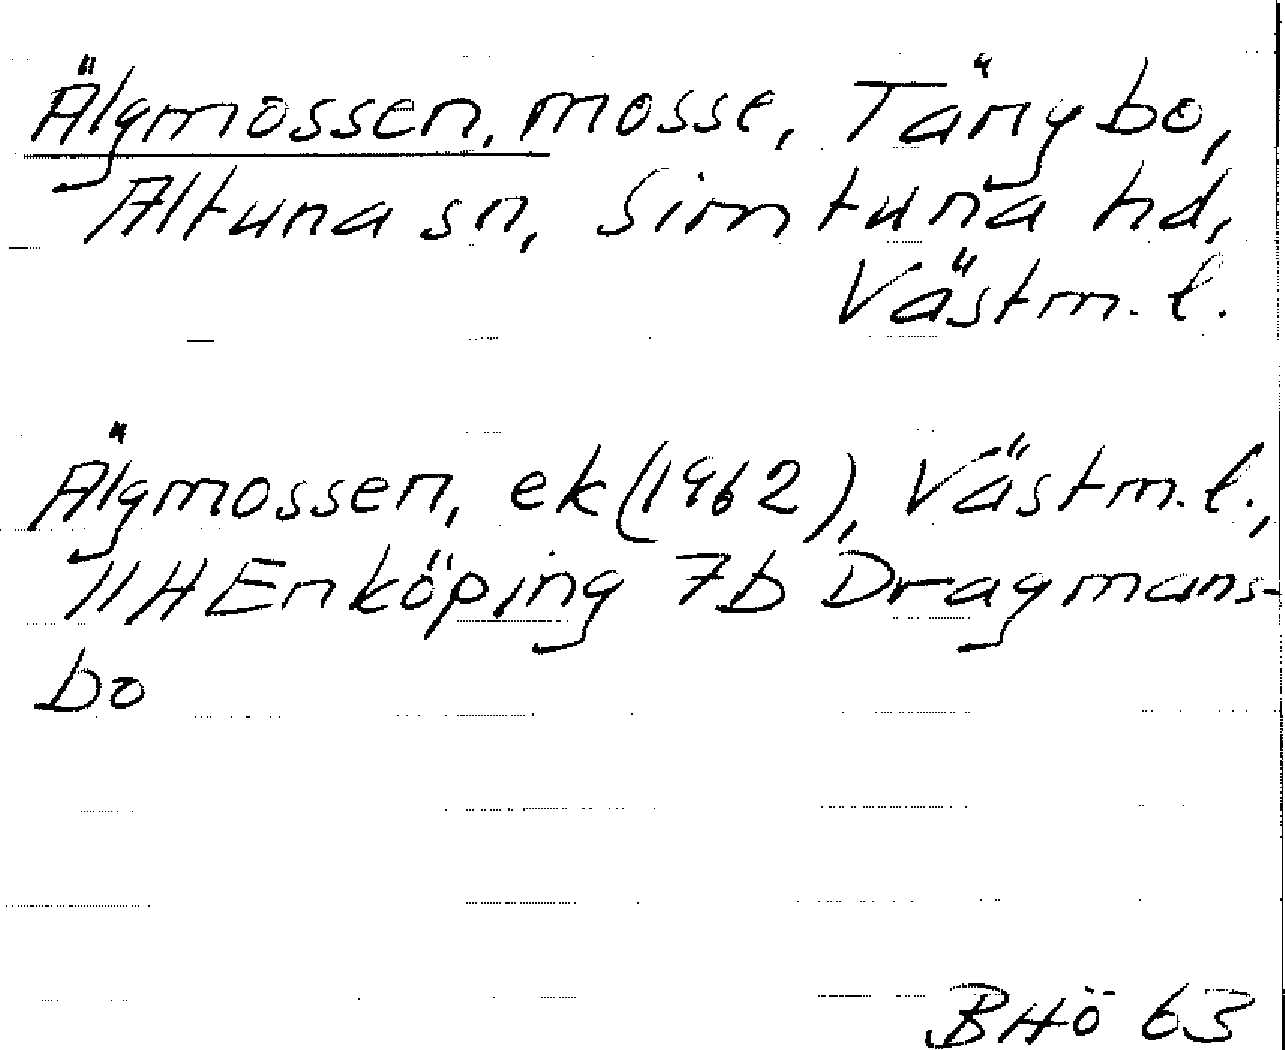 Älgmossen, mosse, Tängbo,
Altuna sn, Simtuna hd,
Västm. l.
Älgmossen, ek (1962), Västm. l.,
11H Enköping 7b Dragmans-
bo
BHö 63